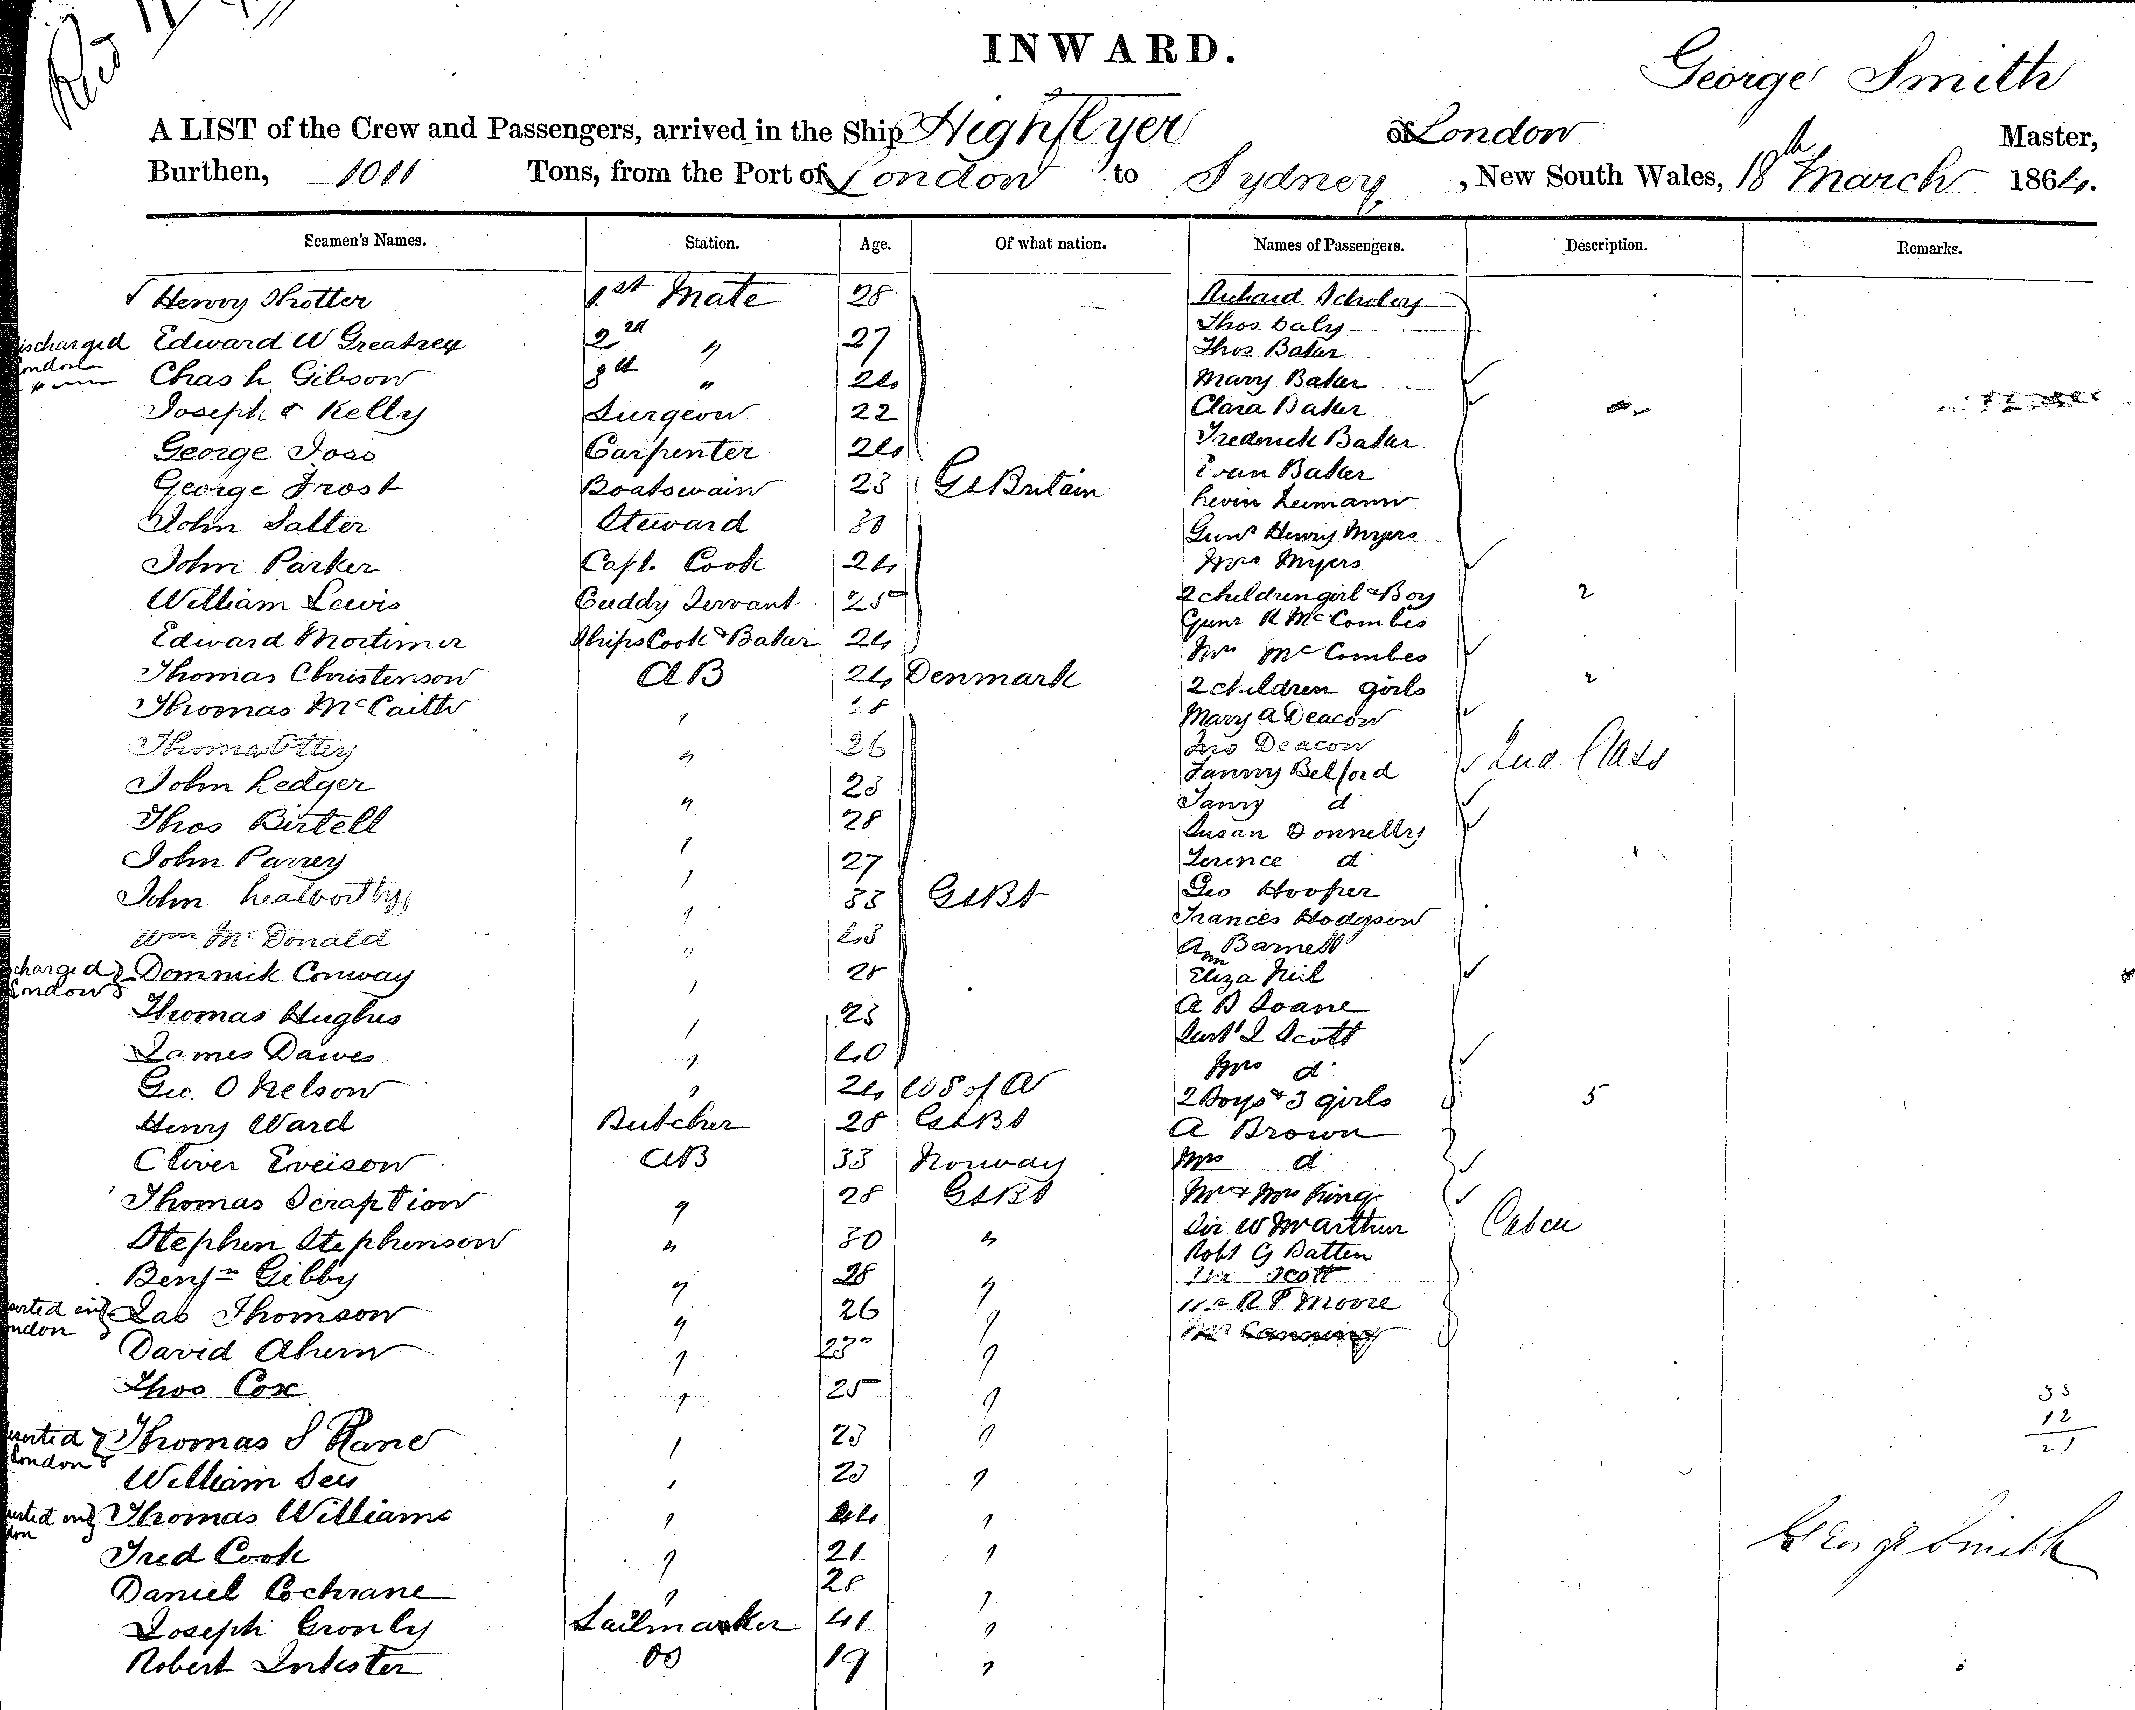 INWARD.
George Smith
A LIST of the Crew and Passengers, arrived in the Ship Highflyer of London Master,
Burthen, 1011 Tons, from the Port of London to Sydney, New South Wales, 18th March 1864.
Seamen's Names. Station. Age. Of what nation. Names of Passengers. Description. Remarks.
Henry Trotter 1st Mate 28
Edward W Greatrex 2nd " 27
Chas h Gibson 3rd " 24
Joseph Kelly Surgeon 22
George Joss Carpenter 24
George Frost Boatswain 23 Gt Britain
John Salter Steward 30
John Parker Capt. Cook 24
William Lewis Cuddy Servant 25
Edward Mortimer Ships Cook & Baker 24
Thomas Christenson AB 24 Denmark
Thomas McCaith "
Thomas Ottey " 26
John Ledger " 23
Thos Birtell " 28
John Parrey " 27
John " 33 Gt Bt
Wm McDonald " 43
discharged London Dominick Conway " 28
Thomas Hughes " 23
James Dawes " 40
Geo. O Nelson " 24 US of A
Henry Ward Butcher 28 Gt Bt
Oliver Eveison AB 33 Norway
Thomas Scraption " 28 Gt Bt
Stephen Stephenson " 30 "
Benjn Gibby " 28 "
Jas Thomson " 26 "
David Ahern " 23 "
Thos Cox " 25 "
Thomas S Kane " 23 "
William " 23 "
Thomas Williams " "
Fred Cook " 21 "
Daniel Cochrane " 28 "
Joseph Sailmaker 41 "
Robert Inkster OS 19 "
Richard Scholey
Thos Daly
Thos Baker
Mary Baker
Clara Baker
Frederick Baker
Evan Baker
Gunr Henry Myers
Mrs Myers
2 children girl & Boy 2
Gunr R McCombes
Mrs McCombes
2 children girls 2
Mary A Deacon
Deacon
Fanny Belford 2nd Class
Fanny d
Susan Donnelly
Terence d
Geo Hooper
Frances Hodgson
Ann Barnett
Eliza Neil
A B Soane
Sert J Scott
Mrs d
2 Boys & 3 girls 5
A Brown
Mrs d
Mr & Mrs King
Sir W McArthur Cabin
Robt G Batten
Scott
R P Moore
33
12
21
George Smith